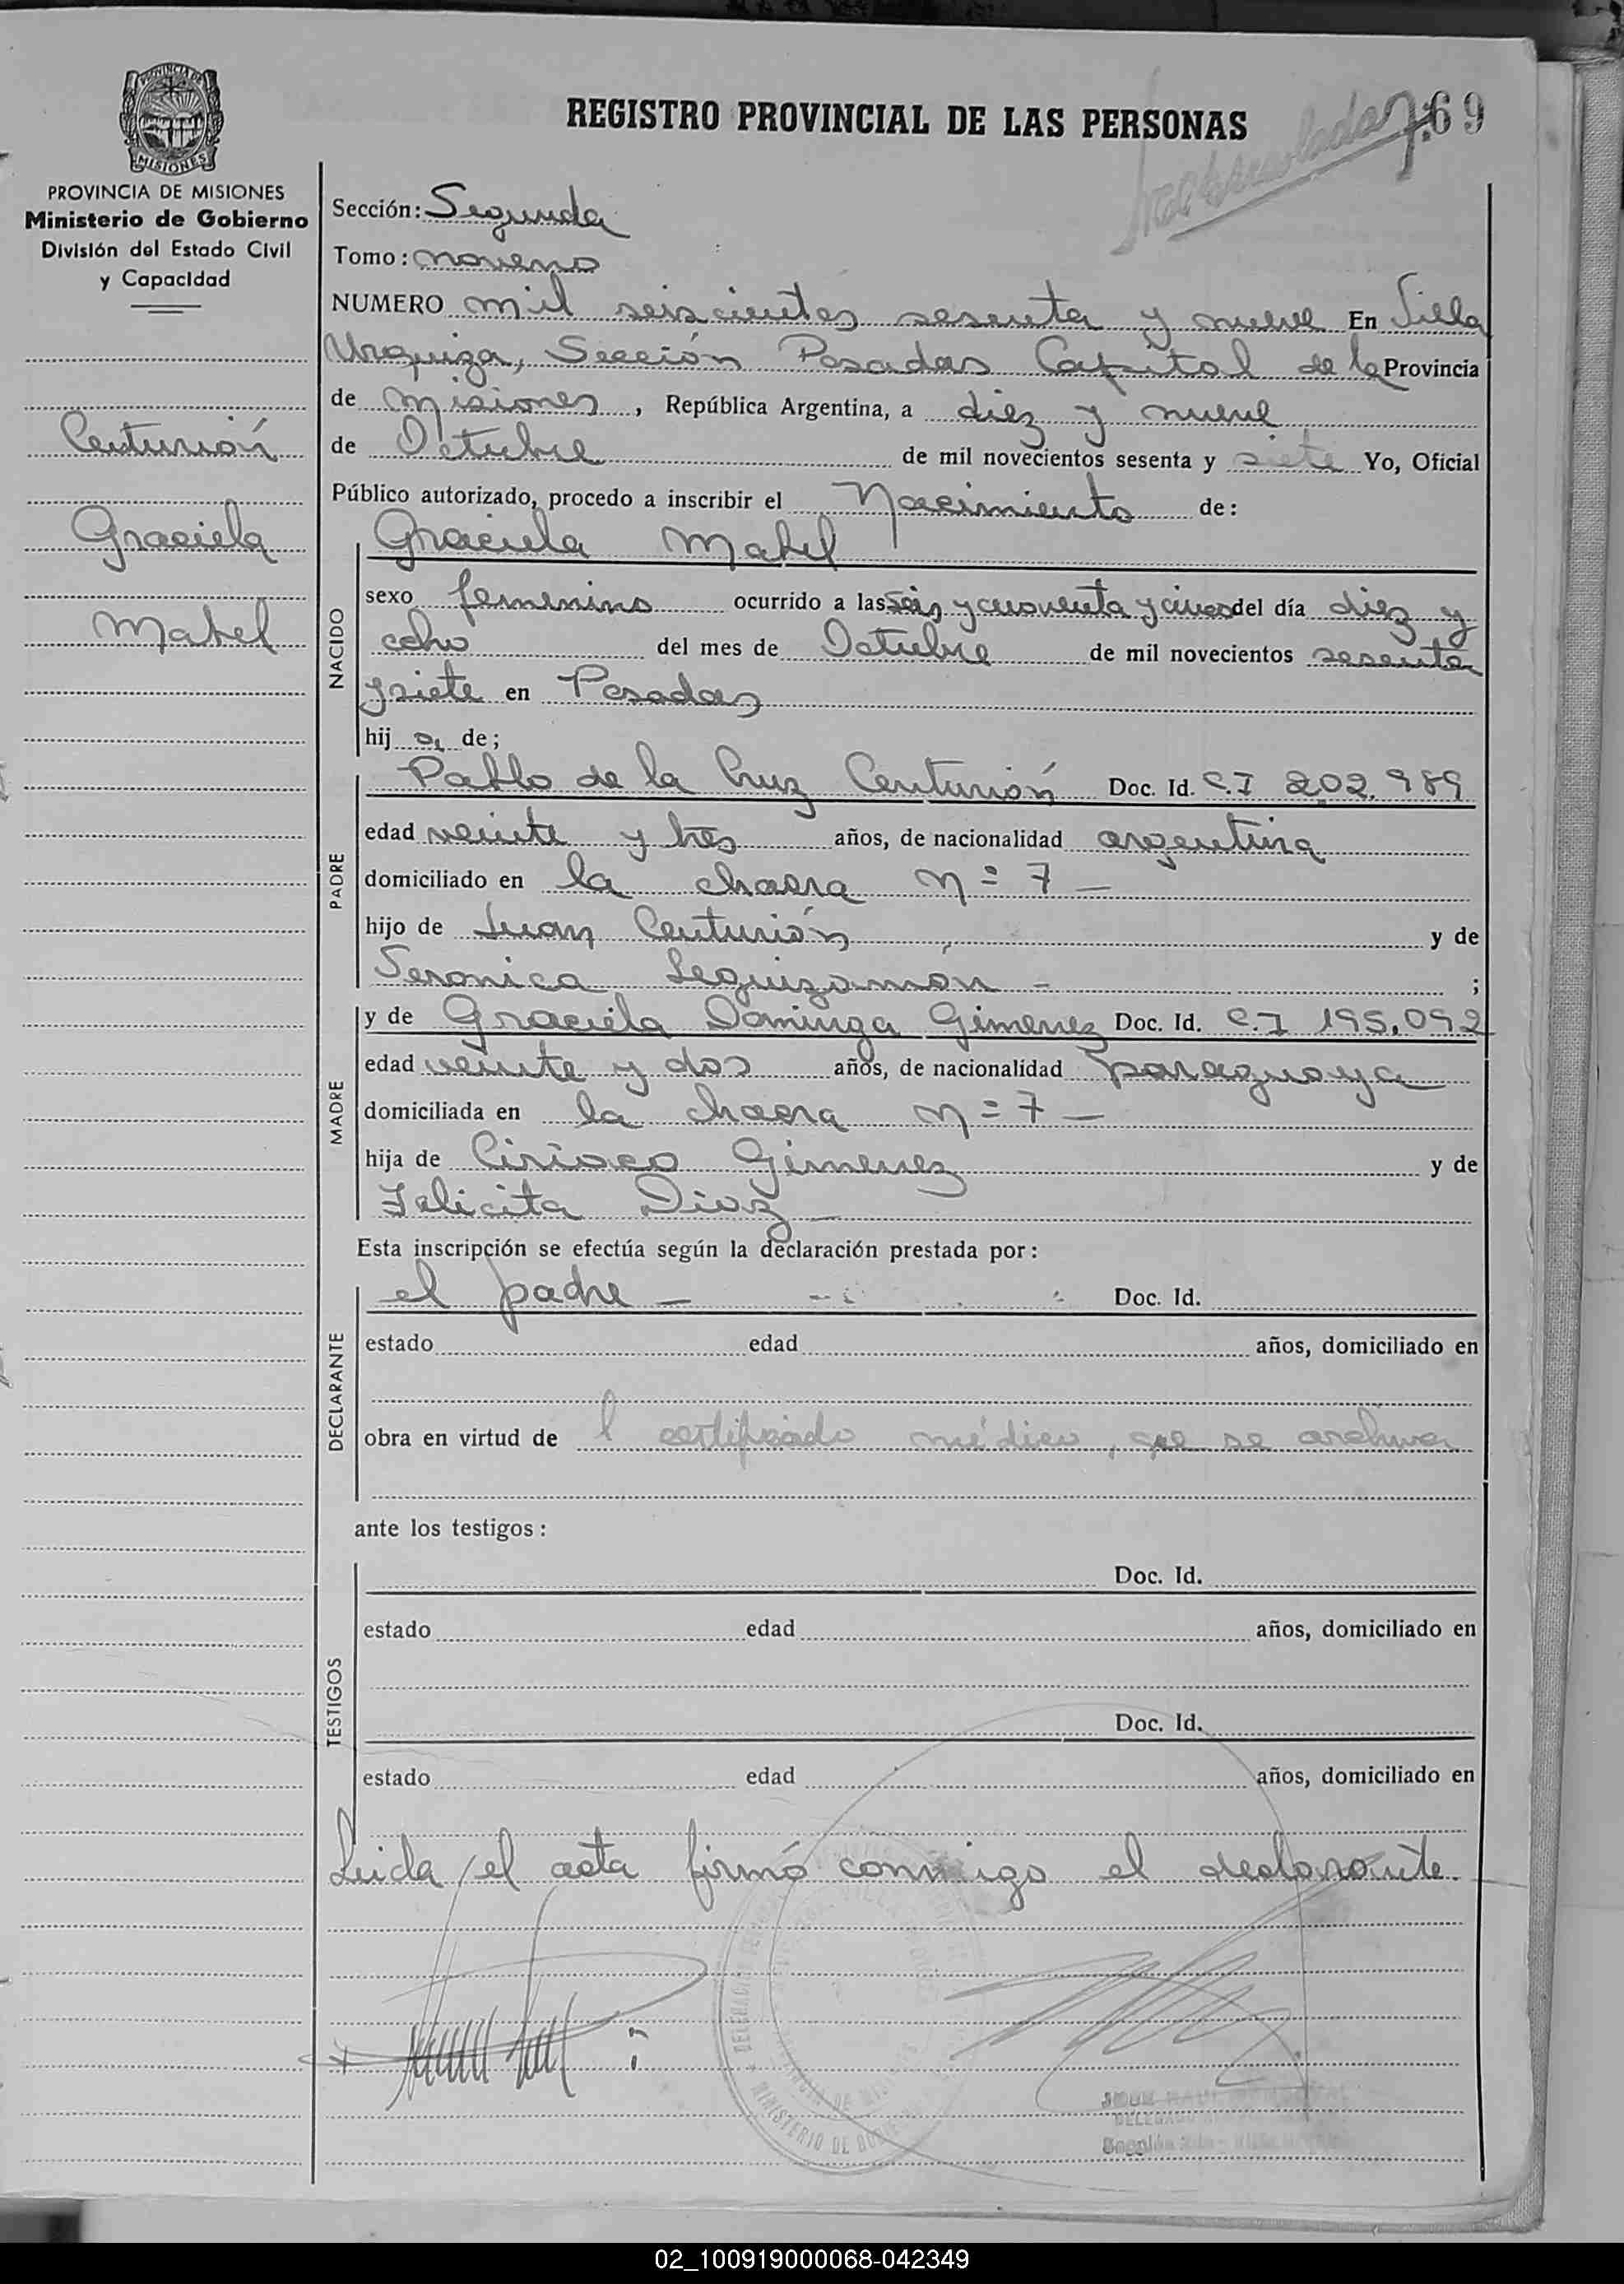 REGISTRO PROVINCIAL DE LAS PERSONAS
69
PROVINCIA DE
MISIONES
PROVINCIA DE MISIONES
Ministerio de Gobierno
División del Estado Civil
y Capacidad
Centurión
Graciela
Mabel
Sección: Segunda
Tomo: noveno
NUMERO mil seiscientos sesenta y nueve En Villa
Urquiza, Sección Posadas Capital de la Provincia
de Misiones, República Argentina, a diez y nueve
de Octubre de mil novecientos sesenta y siete Yo, Oficial
Público autorizado, procedo a inscribir el Nacimiento de:
Graciela Mabel
NACIDO
sexo femenino ocurrido a las seis y cuarenta y cinco del día diez y
ocho del mes de Octubre de mil novecientos sesenta
y siete en Posadas
hija de;
Pablo de la Cruz Centurión Doc. Id. C.I 202.989
PADRE
edad veinte y tres años, de nacionalidad argentina
domiciliado en la chacra Nº 7 -
hijo de Juan Centurión y de
Seronica Leguizamón - ;
y de Graciela Dominga Gimenez Doc. Id. C.I 195.092
MADRE
edad veinte y dos años, de nacionalidad paraguaya
domiciliada en la chacra Nº 7 -
hija de Ciriaco Gimenez y de
Felicita Diaz -
Esta inscripción se efectúa según la declaración prestada por:
el padre - Doc. Id.
DECLARANTE
estado edad años, domiciliado en
obra en virtud del certificado médico, que se archiva
ante los testigos:
Doc. Id.
TESTIGOS
estado edad años, domiciliado en
Doc. Id.
estado edad años, domiciliado en
Leida el acta firmó conmigo el declarante.
MINISTERIO DE
02_100919000068-042349